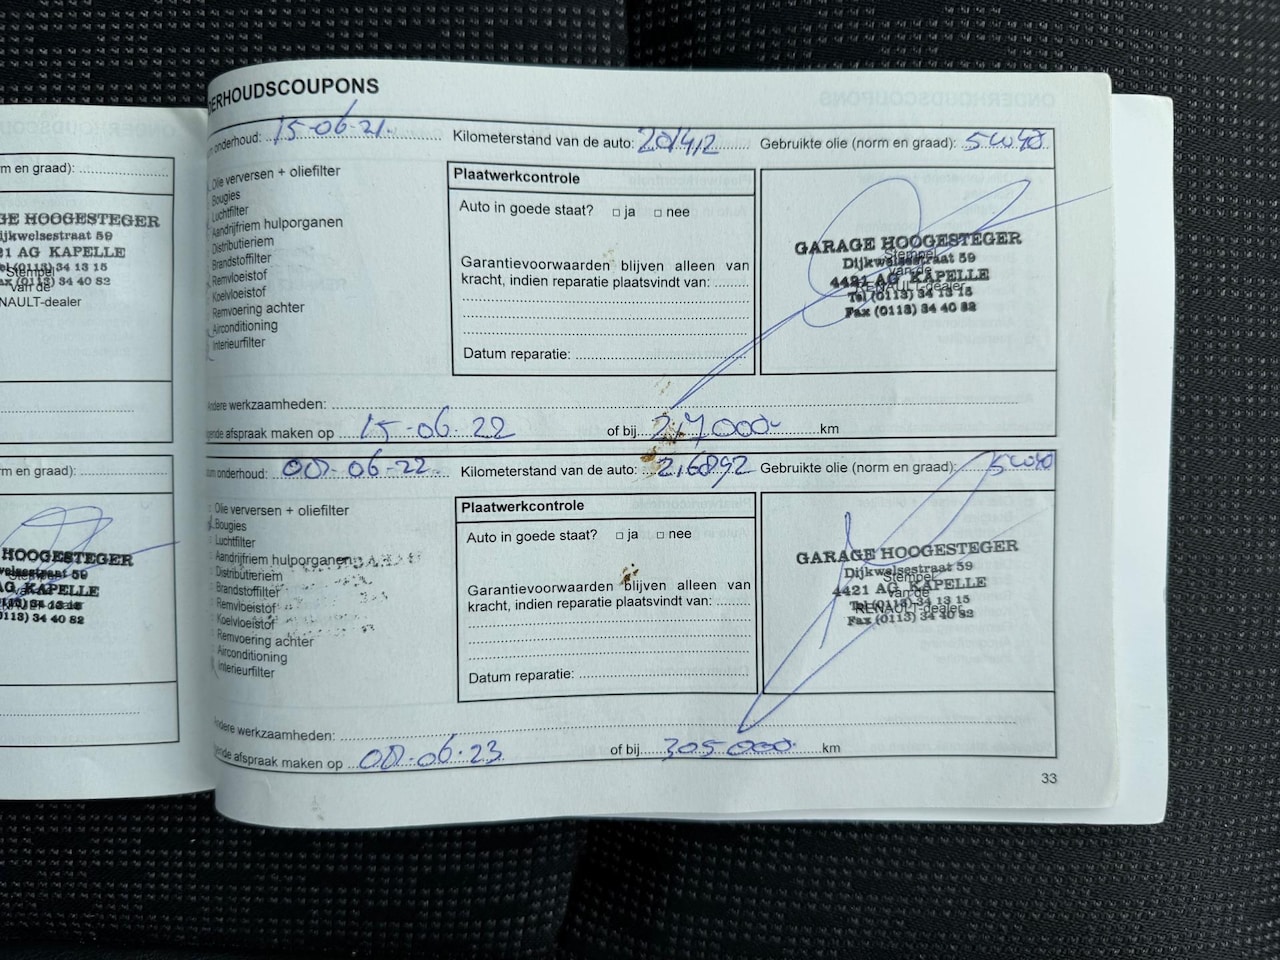 ERHOUDSCOUPONS
onderhoud: 15-06-21 Kilometerstand van de auto: 201412 Gebruikte olie (norm en graad): 5w40
Olie verversen + oliefilter
Bougies
Luchtfilter
Aandrijfriem hulporganen
Distributieriem
Brandstoffilter
Remvloeistof
Koelvloeistof
Remvoering achter
Airconditioning
Interieurfilter
Plaatwerkcontrole
Auto in goede staat? □ ja □ nee
Garantievoorwaarden blijven alleen van
kracht, indien reparatie plaatsvindt van:
Datum reparatie:
GARAGE HOOGESTEGER
Dijkwelsestraat 59
4421 AG KAPELLE
Tel (0113) 34 13 15
Fax (0113) 34 40 82
Stempel
van de
RENAULT-dealer
ndere werkzaamheden:
ende afspraak maken op 15-06-22 of bij 217000 km
onderhoud: 08-06-22 Kilometerstand van de auto: 216892 Gebruikte olie (norm en graad): 5w40
Olie verversen + oliefilter
Bougies
Luchtfilter
Aandrijfriem hulporganen
Distributieriem
Brandstoffilter
Remvloeistof
Koelvloeistof
Remvoering achter
Airconditioning
Interieurfilter
Plaatwerkcontrole
Auto in goede staat? □ ja □ nee
Garantievoorwaarden blijven alleen van
kracht, indien reparatie plaatsvindt van:
Datum reparatie:
GARAGE HOOGESTEGER
Dijkwelsestraat 59
4421 AG KAPELLE
Tel (0113) 34 13 15
Fax (0113) 34 40 82
Stempel
van de
RENAULT-dealer
Andere werkzaamheden:
ende afspraak maken op 08-06-23 of bij 305000 km
33
m en graad):
GE HOOGESTEGER
ijkwelsestraat 59
21 AG KAPELLE
Tel (0113) 34 13 15
Fax (0113) 34 40 82
Stempel
van de
NAULT-dealer
m en graad):
HOOGESTEGER
welsestraat 59
AG KAPELLE
(0113) 34 13 15
0113) 34 40 82